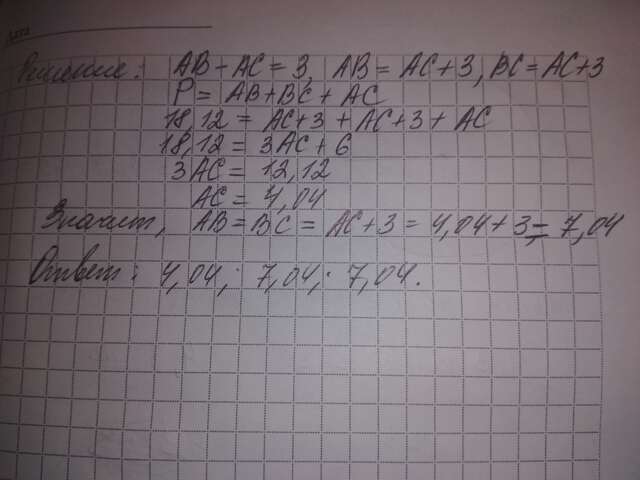 Решение: AB - AC = 3, AB = AC + 3, BC = AC + 3
P = AB + BC + AC
18,12 = AC + 3 + AC + 3 + AC
18,12 = 3AC + 6
3AC = 12,12
AC = 4,04
Значит, AB = BC = AC + 3 = 4,04 + 3 = 7,04
Ответ: 4,04; 7,04; 7,04.